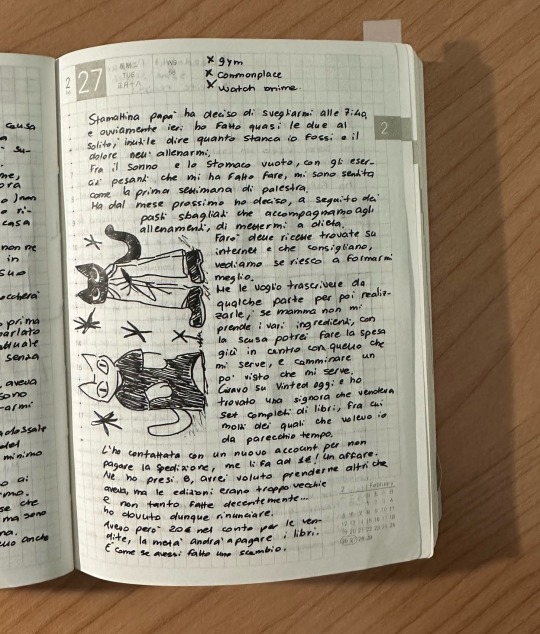 causa
su-
me,
ora
non
ri-
casa
non me
in
suo
prima
parlato
senza
aveva
sono
-armi
minimo
ai
che
ma sono
anche
2
27
星期二
TUE
正月十八
WG
58
x gym
x commonplace
x watch anime
2
Stamattina papà ha deciso di svegliarmi alle 7:40,
e ovviamente ieri ho fatto quasi le due al
solito, inutile dire quanto stanca io fossi e il
dolore nell' allenarmi.
Fra il sonno e lo stomaco vuoto, con gli eser-
cizi pesanti che mi ha fatto fare, mi sono sentita
come la prima settimana di palestra.
Ma dal mese prossimo ho deciso, a seguito dei
pasti sbagliati che accompagnamo agli
allenamenti, di mettermi a dieta.
Farò delle ricette trovate su
internet e che consigliano,
vediamo se riesco a formarmi
meglio.
Me le voglio trascrivere da
qualche parte per poi realiz-
zarle, se mamma non mi
prende i vari ingredienti, con
la scusa potrei fare la spesa
giù in centro con quello che
mi serve, e camminare un
po' visto che mi serve.
Giravo su Vinted oggi e ho
trovato una signora che vendeva
set completi di libri, fra cui
molti dei quali che volevo io
da parecchio tempo.
L'ho contattata con un nuovo account per non
pagare la spedizione, me li fa ad 1€! Un affare.
Ne ho presi 8, avrei voluto prenderne altri che
aveva, ma le edizioni erano troppo vecchie
e non tanto fatte decentemente...
ho dovuto dunque rinunciare.
Avevo però 20€ nel conto per le ven-
dite, la metà andrà a pagare i libri.
È come se avessi fatto uno scambio.
2 February